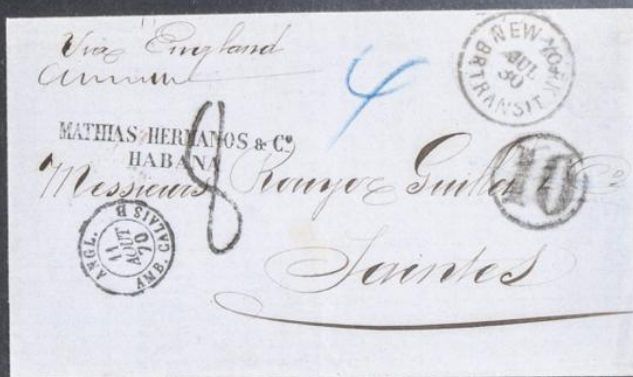 Via England
NEW-YORK
JUL
30
BR TRANSIT
4
MATHIAS HERMANOS & Cº
HABANA
8
Messieurs Rouyer Guillet & Cº
10
ANGL.
11
AOUT
70
AMB. CALAIS B
Saintes